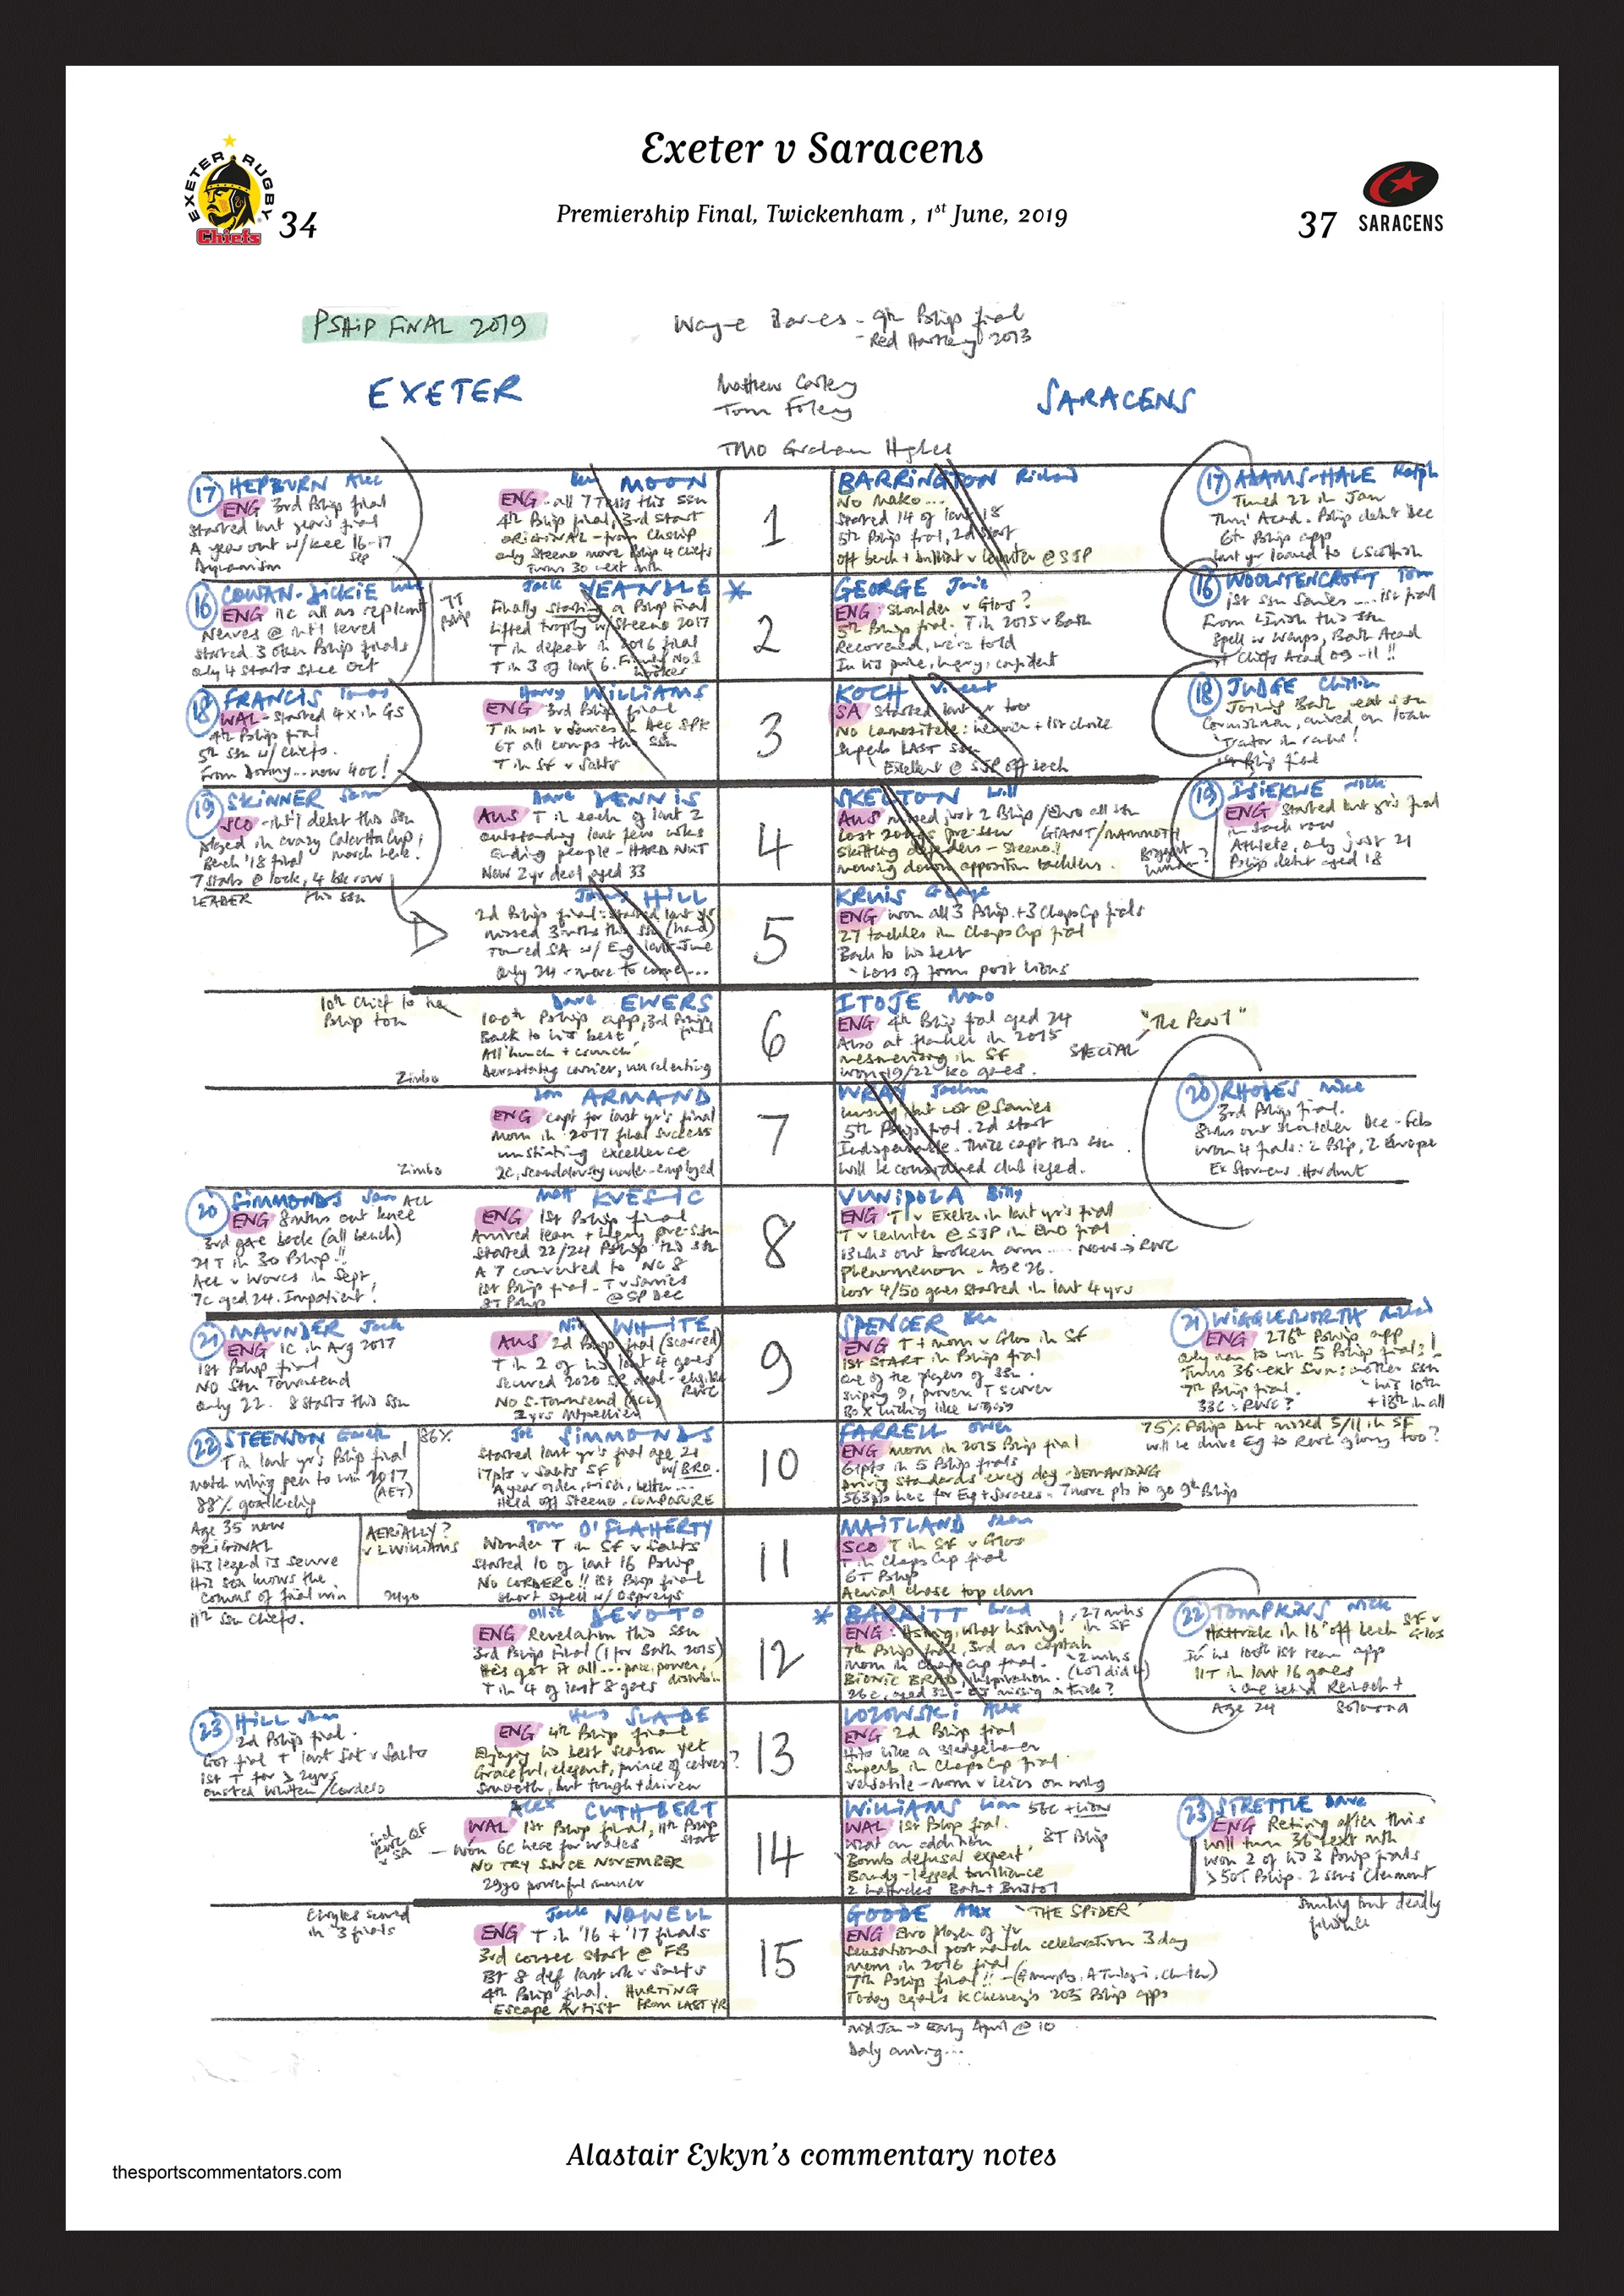 Exeter v Saracens
EXETER RUGBY
Chiefs
34
Premiership Final, Twickenham , 1st June, 2019
37
SARACENS
PSHIP FINAL 2019
Wayne Barnes - 9th Pship final
- Red Hartley 2013
EXETER
Mathew Carley
Tom Foley
SARACENS
TMO Graham Hughes
17 HEPBURN Alec
ENG 3rd Pship final
Started last year's final
A year out w/knee 16-17
Dynamism Sep
Ben MOON
ENG - all 7 Tests this ssn
4th Pship final, 3rd start
ORIGINAL - from Chship
only Steeno more Pship 4 Chiefs
Turns 30 next mth
1
BARRINGTON Richard
No Mako...
Started 14 of last 18
5th Pship final, 2d start
off bench + brilliant v Leinster @ SJP
17 ADAMS-HALE Ralph
Turned 22 in Jan
Thru' Acad. Pship debut Dec
6th Pship app
Last yr loaned to L Scottish
16 COWAN-DICKIE Luke
ENG 11c all as replcmt
Nerves @ int'l level
Started 3 other Pship finals
only 4 starts since Oct
7T
Pship
Jack YEANDLE *
Finally starting a Pship final
Lifted trophy w/Steeno 2017
T in defeat in 2016 final
T in 3 of last 6. Firmly No1
hooker
2
GEORGE Jamie
ENG shoulder v Glos?
5th Pship final. T in 2015 v Bath
Recovered, we're told
In his prime, hungry, confident
16 WOOLSTENCROFT Tom
1st ssn Sarries .... 1st final
From L Irish this ssn
Spell w Wasps, Bath Acad
+ Chiefs Acad 09-11 !!
18 FRANCIS Tomas
WAL - started 4x in GS
4th Pship final
5th ssn w/ Chiefs.
From Donny... now 40c!
Harry WILLIAMS
ENG 3rd Pship final
T in win v Sarries in Dec SPK
6T all comps this ssn
T in SF v Saints
3
KOCH Vincent
SA started last yr too
No Lamositele: heavier + 1st choice
Superb LAST ssn
Excellent @ SJP off bench
18 JUDGE Christian
Joining Bath next ssn
Cornishman, arrived on loan
'Traitor in ranks'!
1st Pship final
19 SKINNER Sam
SCO - Int'l debut this ssn
played in crazy Calcutta Cup,
Bench '18 final March here.
7 starts @ lock, 4 bk row
LEADER this ssn
Dave DENNIS
AUS T in each of last 2
outstanding last few wks
Ending people - HARD NUT
New 2yr deal aged 33
4
SKELTON Will
AUS missed just 2 Pship/Euro all ssn
Lost 20kgs pre-ssn GIANT/MAMMOTH
Skittling defenders - Steeno!!
mowing down opposition tacklers.
Biggest
human?
19 ISIEKWE Nick
ENG Started last yr's final
in back row
Athlete, only just 21
Pship debut aged 18
Jonny HILL
2d Pship final: started last yr
missed 3mths this ssn (hand)
Toured SA w/ Eng last June
only 24 - more to come...
5
KRUIS George
ENG won all 3 Pship + 3 Champs Cp finals
27 tackles in Champs Cup final
Back to his best
- Loss of form post Lions
10th Chief to hit
Pship ton
Dave EWERS
100th Pship app, 3rd Pship
final
Back to his best
All hunch + crunch,
Devastating carrier, unrelenting
Zimbo
6
ITOJE Maro
ENG 4th Pship final aged 24
Also at flanker in 2015
mesmerising in SF
won 19/22 KO games.
SPECIAL
"The Pearl"
Don ARMAND
ENG capt for last yr's final
MOM in 2017 final success
unstinting excellence
2c, scandalously under-employed
Zimbo
7
WRAY Jackson
unsung, but not @ Sarries
5th Pship final. 2d start
Indispensable. Thrice capt this ssn
will be considered club legend.
20 RHODES Mike
3rd Pship final.
8wks out shoulder Dec - Feb
won 4 finals: 2 Pship, 2 Europe
Ex Stormers. Hardnut
20 SIMMONDS Sam ACL
ENG 8mths out knee
3rd game back (all bench)
21T in 30 Pship!!
ACL v Worcs in Sept,
7c aged 24. Impatient!
Matt KVESIC
ENG 1st Pship final
Arrived lean + hungry pre-ssn
Started 22/24 Pship this ssn
A 7 converted to No 8
1st Pship final - T v Sarries
8T Pship @ SP Dec
8
VUNIPOLA Billy
ENG T v Exeter in last yr's final
T v Leinster @ SJP in Euro final
13wks out broken arm.... NOW → RWC
Phenomenon - Age 26.
Lost 4/50 games started in last 4 yrs
21 MAUNDER Jack
ENG 1c in Arg 2017
1st Pship final
NO Stu Townsend
only 22. 8 starts this ssn
Nic WHITE
AUS 2d Pship final (scored)
T in 2 of his last 4 games
Secured 2020 SR deal - eligible
RWC
NO S. Townsend (ACL)
3 yrs Montpellier
9
SPENCER Ben
ENG T + mom v Glos in SF
1st START in Pship final
one of the players of ssn.
sniping 9, proven T scorer
Box kicking like Wiggy
21 WIGGLESWORTH Richard
ENG 276th Pship app
only man to win 5 Pship finals!!
Turns 36 next Sun: another ssn
7th Pship final. - his 10th
33c: RWC? + 18th in all
22 STEENSON Gareth
T in last yr's Pship final
match wining pen to win 2017
(AET)
88% goalkicking
86%
Joe SIMMONDS
Started last yr's final age 21
17pts v Saints SF w/ BRO.
A year older, wiser, better...
Held off Steeno. COMPOSURE
10
FARRELL Owen
ENG mom in 2015 Pship final
61pts in 5 Pship finals
Driving standards every day - DEMANDING
563pts here for Eng + Saracens - 7 more pts to go 9th Pship
75% Pship but missed 5/11 in SF
will he drive Eng to RWC glory too?
Age 35 now
ORIGINAL
His legend is secure
His son knows the
comms of final win
11th ssn Chiefs.
AERIALLY?
v L WILLIAMS
24yo
Tom O'FLAHERTY
Wonder T in SF v Saints
Started 10 of last 16 Pship
NO CORDERO!! 1st Pship final
short spell w/ Ospreys
11
MAITLAND Sean
SCO T in SF v Glos
T in Champs Cup final
6T Pship
Aerial chase top class
Ollie DEVOTO
ENG Revelation this ssn
3rd Pship Final (1 for Bath 2015)
He's got it all... pace, power,
distribn
T in 4 of last 8 games
12
* BARRITT Brad
ENG: Hstring, what hstring? 27 mins
in SF
7th Pship final, 3rd as captain
Mom in Champs Cup final.
BIONIC BRAD, inspiration.
26c, aged 32 - EJ missing a trick?
22 TOMPKINS Nick
Hattrick in 16' off bench SF v
Glos
in his 100th 1st team app
11T in last 16 games
Age 24
23 HILL Sam
2d Pship final.
Got final T last Sat v Saints
1st T for > 2yrs
ousted Whitten/Cordero
Henry SLADE
ENG 4th Pship final
Enjoying his best season yet
Graceful, elegant, prince of centres?
Smooth, but tough + driven
13
LOZOWSKI Alex
ENG 2d Pship final
Hits like a sledgehammer
Superb in Champs Cup final.
Versatile - mom v Leics on wing
Alex CUTHBERT
WAL 1st Pship final, 11th Pship
start
- Won 6c here for Wales
NO TRY SINCE NOVEMBER
29yo powerful runner
RWC QF
v SA
14
WILLIAMS Liam 56c + Lion
WAL 1st Pship final.
What an addition 8T Pship
'Bomb defusal expert'
Bandy-legged brilliance
2 hattricks Bath + Bristol
23 STRETTLE Dave
ENG Retiring after this
will turn 36 next mth
won 2 of his 3 Pship finals
> 50T Pship. 2 ssns Clermont
Smiling but deadly
finisher
England scored
in 3 finals
Jack NOWELL
ENG T in '16 + '17 finals
3rd career start @ FB
Bt 8 def last wk v Saints
4th Pship final. HURTING
Escape Artist FROM LAST YR
15
GOODE Alex 'THE SPIDER'
ENG Euro Player of Yr
Sensational post match celebration 3 day
Mom in 2016 final
7th Pship final!!
Today equals K Chesney's 203 Pship apps
mid Jan → early April @ 10
Daly arriving...
Alastair Eykyn's commentary notes
thesportscommentators.com